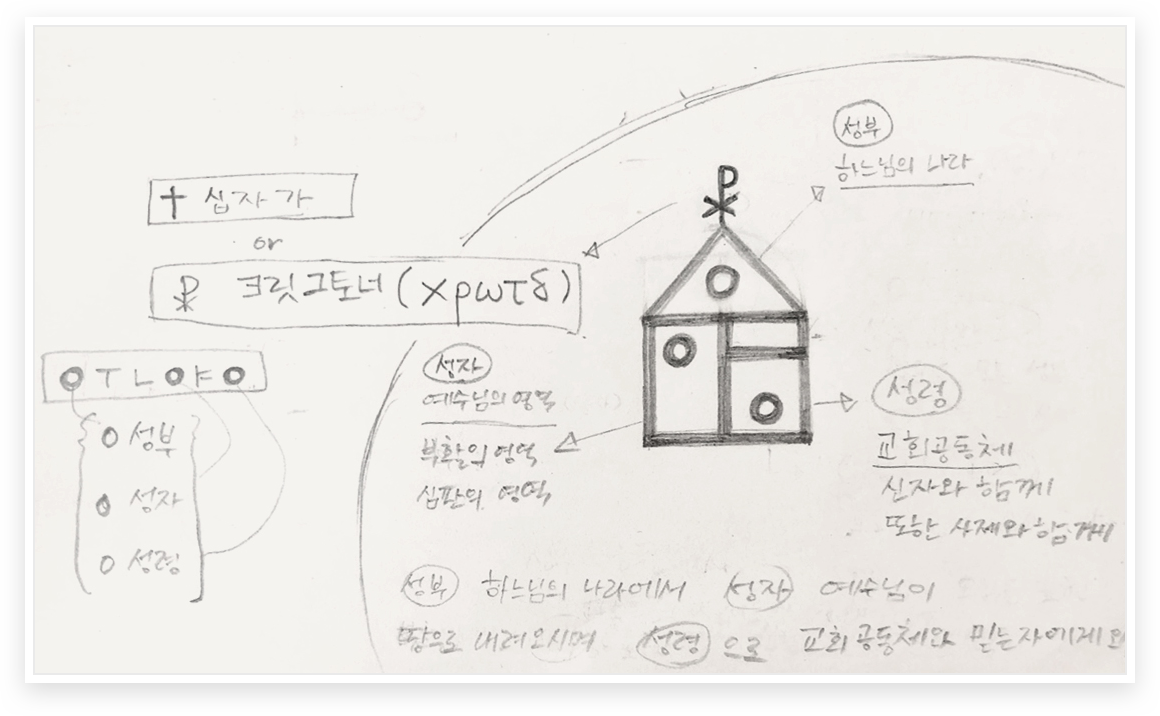 성부
하느님의 나라
† 십자가
or
☧ 크릿그토너 (χρωτδ)
☧
성자
예수님의 영역
부활의 영역
심판의 영역
성령
교회공동체
신자와 함께
또한 사제와 함께
O T L O F O
O 성부
O 성자
O 성령
성부 하느님의 나라에서 성자 예수님이
땅으로 내려오시며 성령으로 교회공동체와 믿는자에게